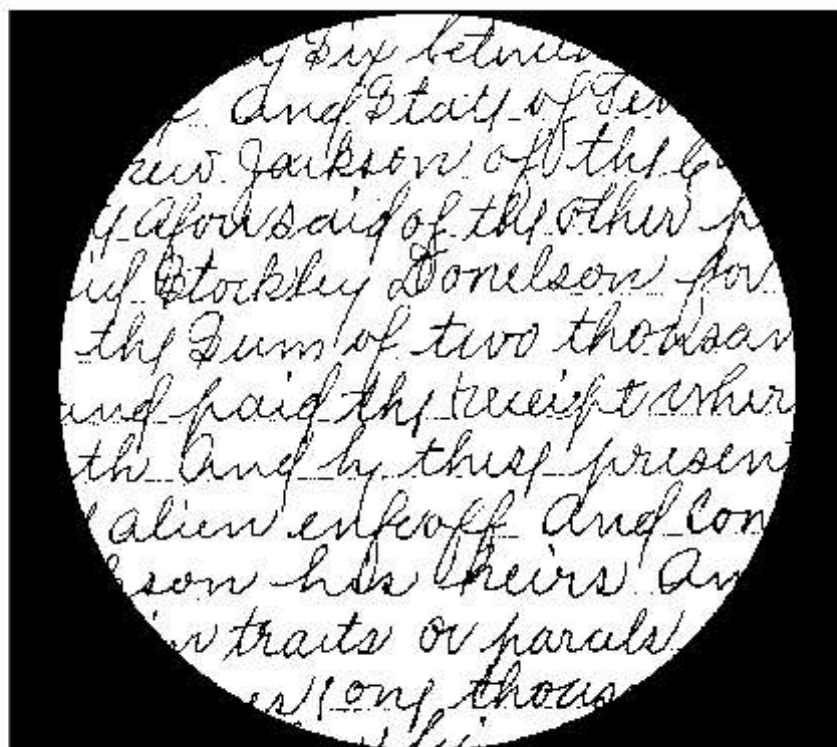 Six between
and State of Ten
rew Jackson of the Co
y aforesaid of the other p
aid Stockley Donelson for
the Sum of two thousan
and paid the receipt wher
th and by these presen
alien enfeoff and con
kson his heirs An
in tracts or parcels
es one thous